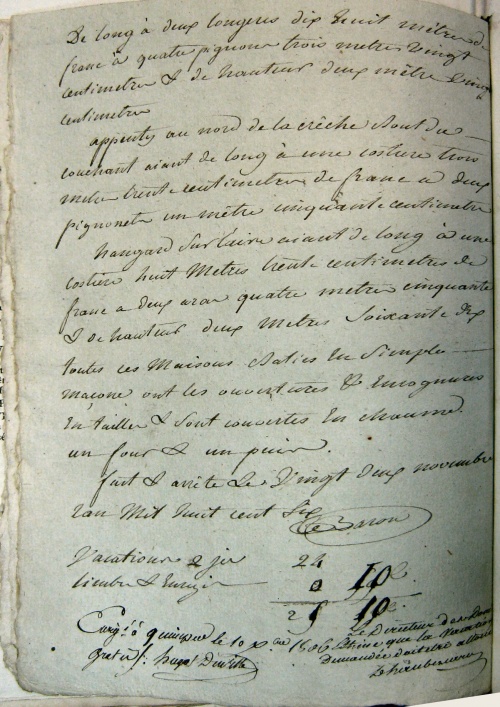 De long à deux longeres dix huit mètres de
franc à quatre pignons trois metres vingt
centimetre & de hauteur deux mètre vingt
centimetre
appentis au nord de la crêche du
couchant aiant de long à une costiere trois
metre trente centimetres de franc a deux
pignonets un mètre cinquante centimetre
hangard sur laire aiant de long à une
costiere huit Metres trente centimetres de
franc a deux quatre metre cinquante
& de hauteur deux Metres Soixante dix
toutes ces Maisons Baties En Simple
maçone ont les ouvertures & Encognures
En tailles & sont couvertes En chaume.
un four & un puis.
fait & arrêté Le Vingt deux novembre
Lan Mil huit cent Six
Le Baron
Vacations 2 jrs 24
timbre & Enregist
10
10
à quimper le 10 xbre 1806
gratis
Le Directeur des
que la vacation
Demandée doit etre